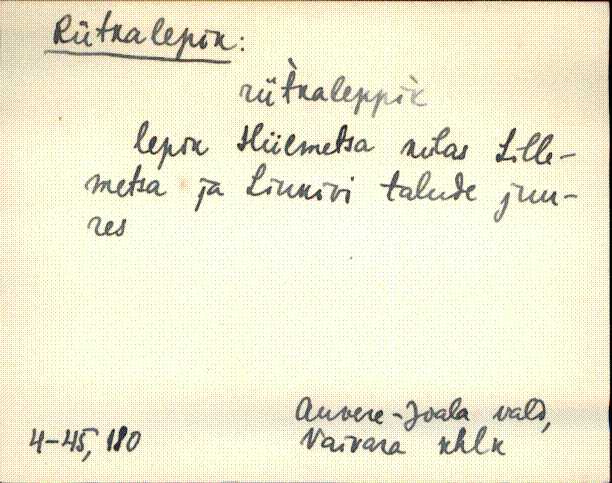 Rütkalepik:
rǜt̀kaleppìk
lepik Hiiemetsa külas Lille-
metsa ja Linnivi talude juu-
res
Auvere-Joala vald,
4-45, 180
Vaivara khlk